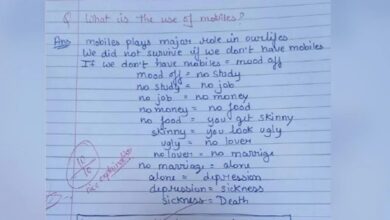 Q What is the use of mobiles?
Ans mobiles plays major role in our lifes
We did not survive if we don't have mobiles
If we don't have mobiles = mood off
mood off = no study
no study = no job
no job = no money
no money = no food
no food = you get skinny
skinny = you look ugly
ugly = no lover
no lover = no marrige
no marrige = alone
alone = depression
depression = sickness
Sickness = Death
10/10